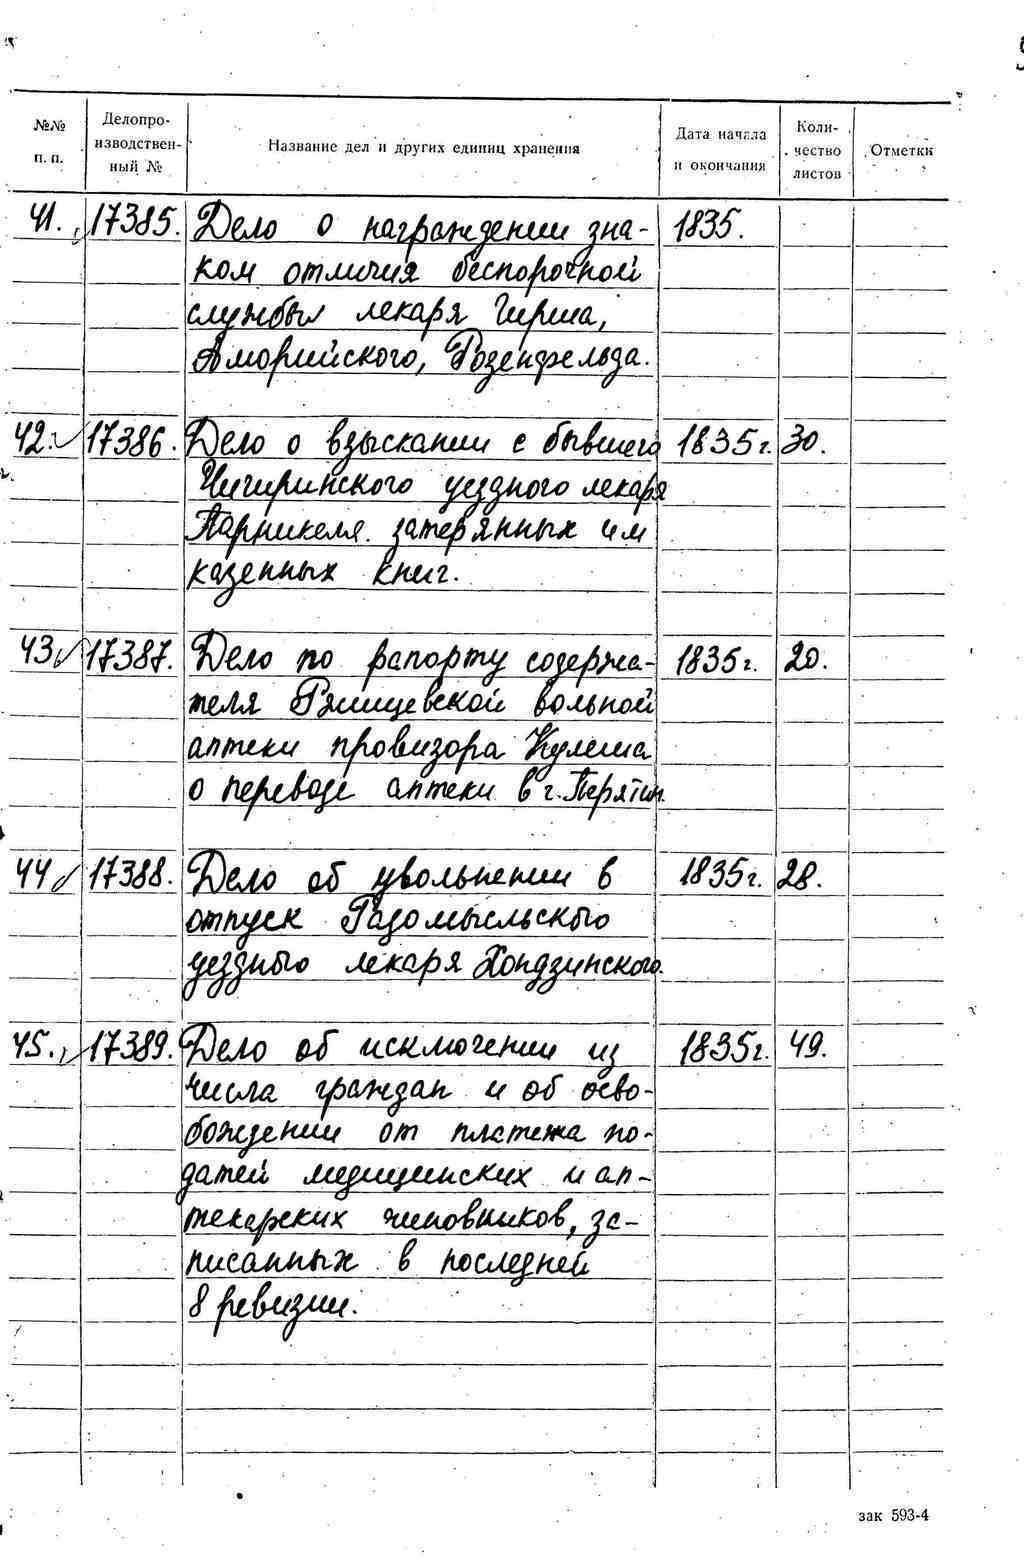 №№ п. п. Делопроизводственный № Название дел и других единиц хранения Дата начала и окончания Количество листов Отметки
41. 17385. Дело о награждении зна- 1835.
ком отличия беспорочной
службы лекаря Гирша,
Аморийского, Розенфельда.
42. 17386. Дело о взыскании с бывшего 1835г. 30.
Чигиринского уездного лекаря
Парникеля затерянных им
казенных книг.
43 17387. Дело по рапорту содержа- 1835г. 20.
теля Ряищевской вольной
аптеки провизора Кулеша
о переводе аптеки в г. Пирятин.
44 17388. Дело об увольнении в 1835г. 28.
отпуск Радомысльского
уездного лекаря Хондзинского.
45. 17389. Дело об исключении из 1835г. 49.
числа граждан и об осво-
бождении от платежа по-
датей медицинских и ап-
текарских чиновников, за-
писанных в последней
8 ревизии.
зак 593-4